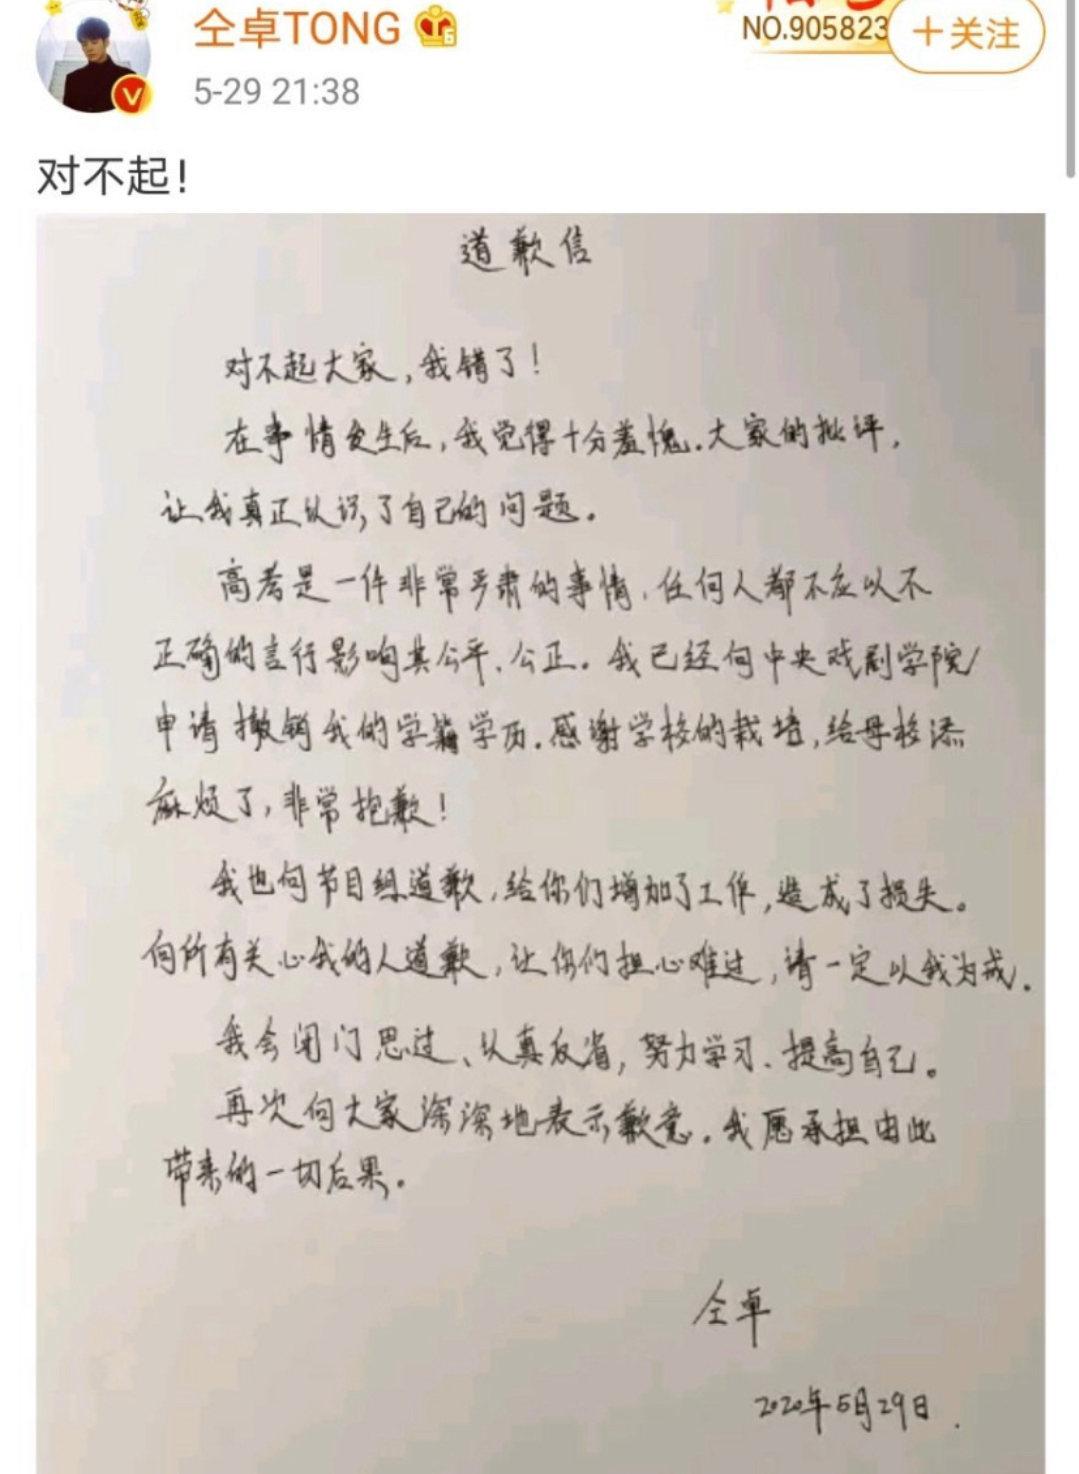 仝卓TONG
NO.905823
+关注
5-29 21:38
对不起!
道歉信
对不起大家,我错了!
在事情发生后,我觉得十分羞愧.大家的批评,
让我真正认识了自己的问题。
高考是一件非常严肃的事情,任何人都不应以不
正确的言行影响其公平、公正。我已经向中央戏剧学院
申请撤销我的学籍学历.感谢学校的栽培,给母校添
麻烦了,非常抱歉!
我也向节目组道歉,给你们增加了工作,造成了损失。
向所有关心我的人道歉,让你们担心难过,请一定以我为戒.
我会闭门思过、认真反省,努力学习、提高自己。
再次向大家深深地表示歉意.我愿承担由此
带来的一切后果。
仝卓
2020年5月29日.